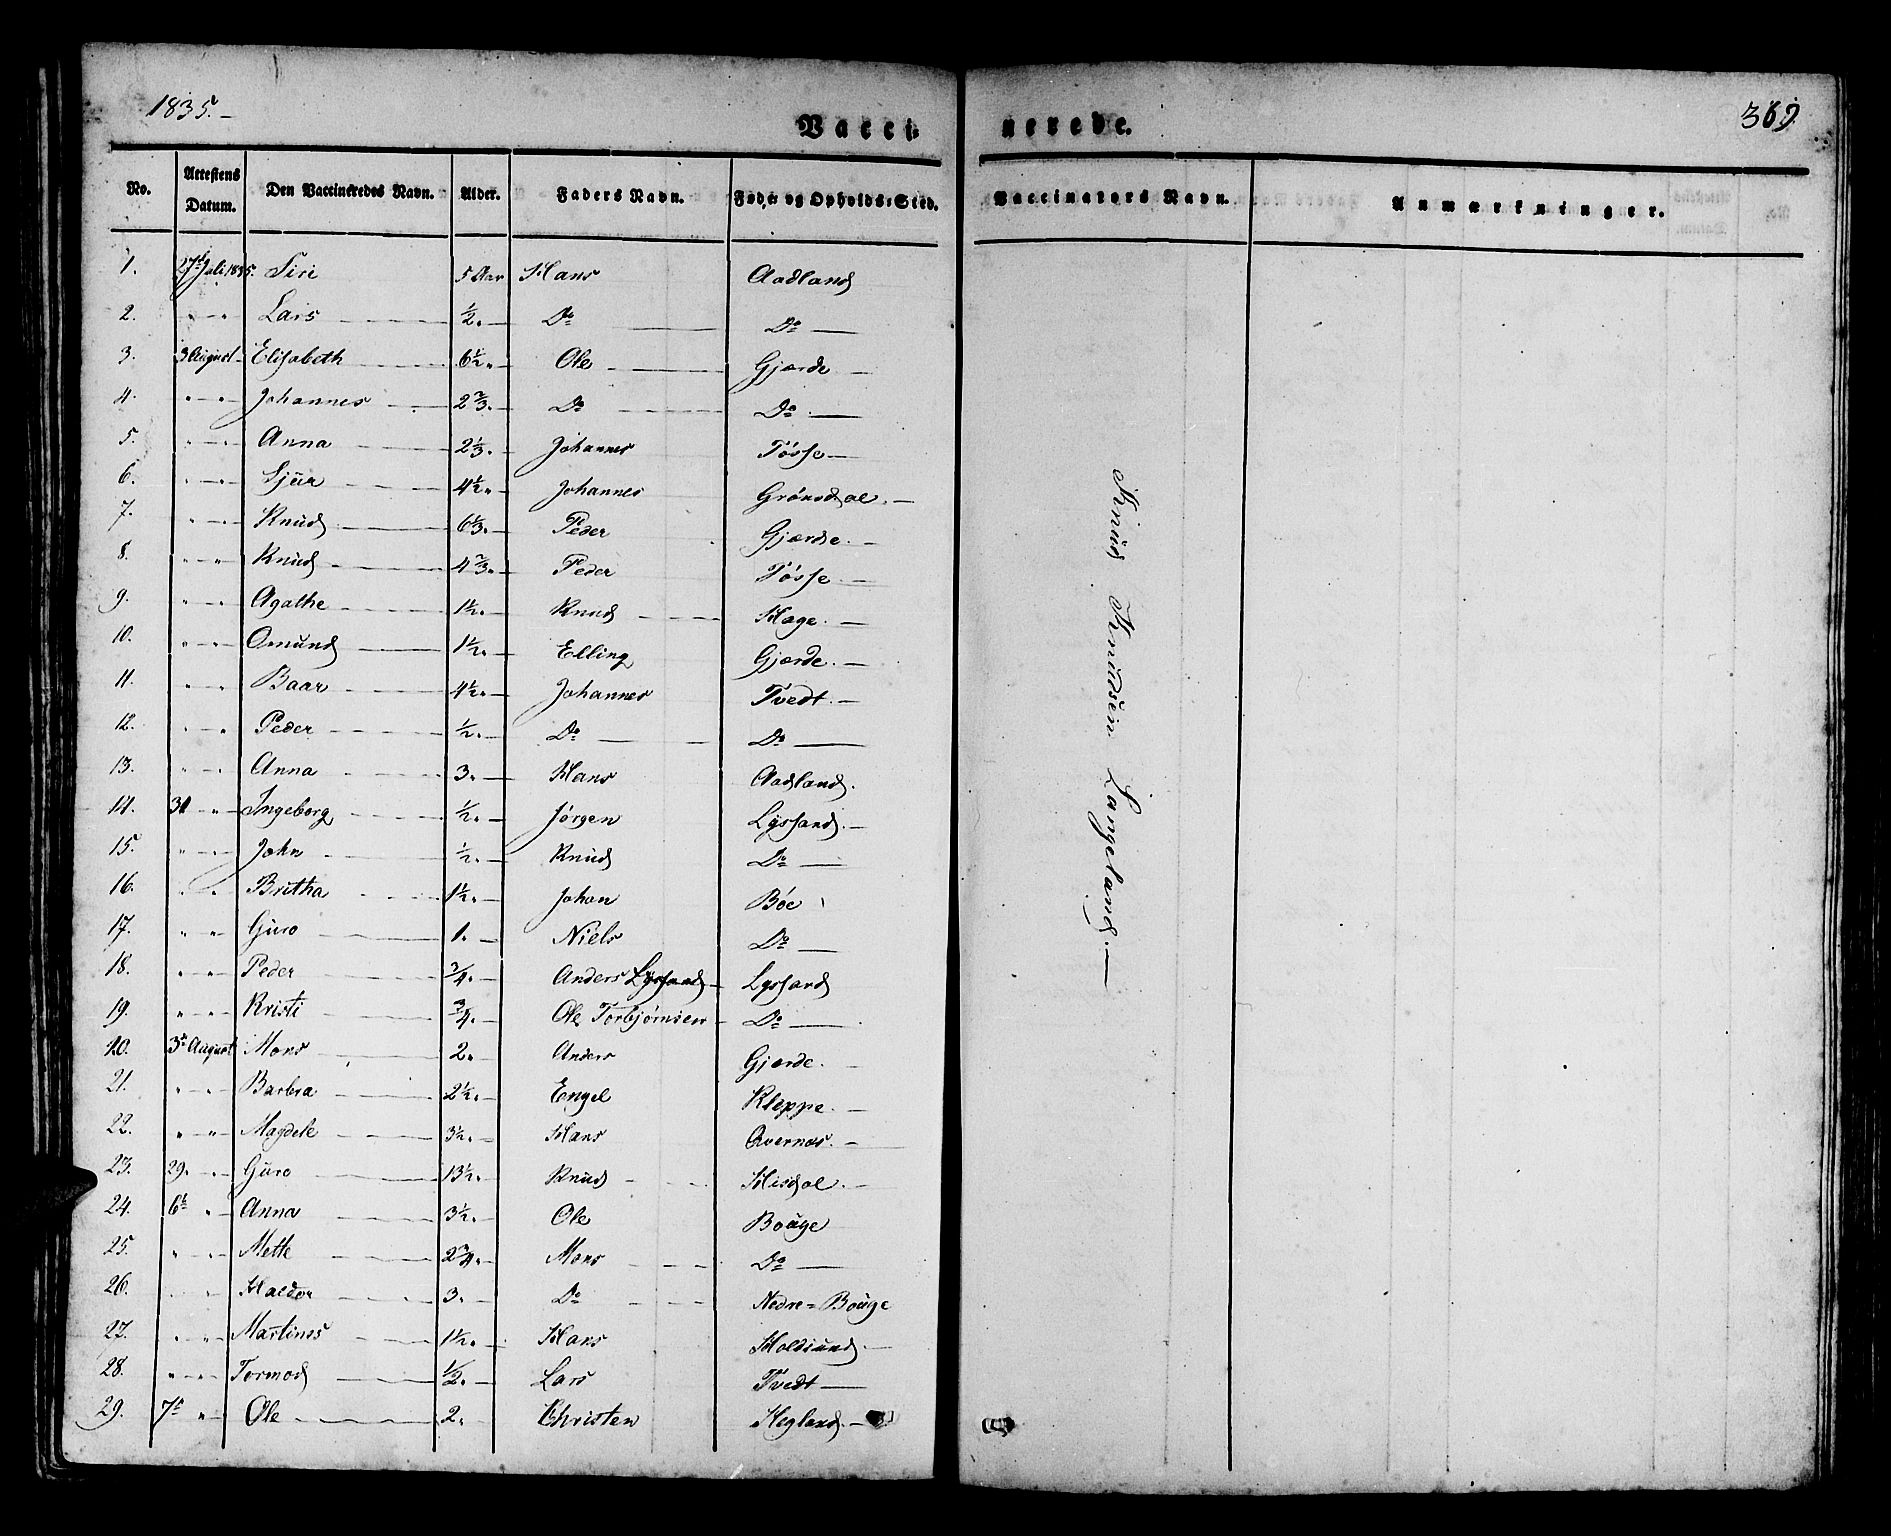 1835.
Vacci-nerede.
369
No. Attestens Datum. Den Vaccineredes Navn. Alder. Faders Navn. Føde og Opholds-Sted. Vaccinators Navn. Anmærkninger.
1. 27de Juli 1835. Siri 5 Aar Hans Aadland
2. " " Lars ½ " Do Do
3. 3 August Elisabeth 6½ " Ole Gjærde
4. " " Johannes 2⅔ " Do Do
5. " " Anna 2⅓ " Johannes Tøsse
6. " " Sjur 4½ " Johannes Grønsdal
7. " " Knud 6⅓ " Peder Gjærde
8. " " Knud 4⅔ " Peder Tøsse
9. " " Agathe 1½ " Knud Hage
10. " " Omund 1½ " Elling Gjærde
11. " " Baar 4½ " Johannes Tvedt
12. " " Peder ½ " Do Do
13. " " Anna 3 " Hans Aadland
14. 31 " Ingeborg ½ " Jørgen Lyssand
15. " " John ½ " Knud Do
16. " " Britha 1½ " Johan Bøe
17. " " Guro 1 " Niels Do
18. " " Peder ¾ " Anders Lyssand Lyssand
19. " " Kristi ¾ " Ole Torbjørnsen Do
20. 3de August Mons 2 " Anders Gjærde
21. " " Barbra 2½ " Engel Kleppe
22. " " Magdele 3½ " Hans Qvernæs
23. 29. " Guro 13½ " Knud Hisdal
24. 6te " Anna 3½ " Ole Bouge
25. " " Mette 2¾ " Mons Do
26. " " Haldor 3 " Do Nedre=Bouge
27. " " Martines 1½ " Hans Holdsund
28. " " Tormod ½ " Lars Tvedt
29. 7de " Ole 2 " Christen Hegland
Knud Knudsen Langeland.